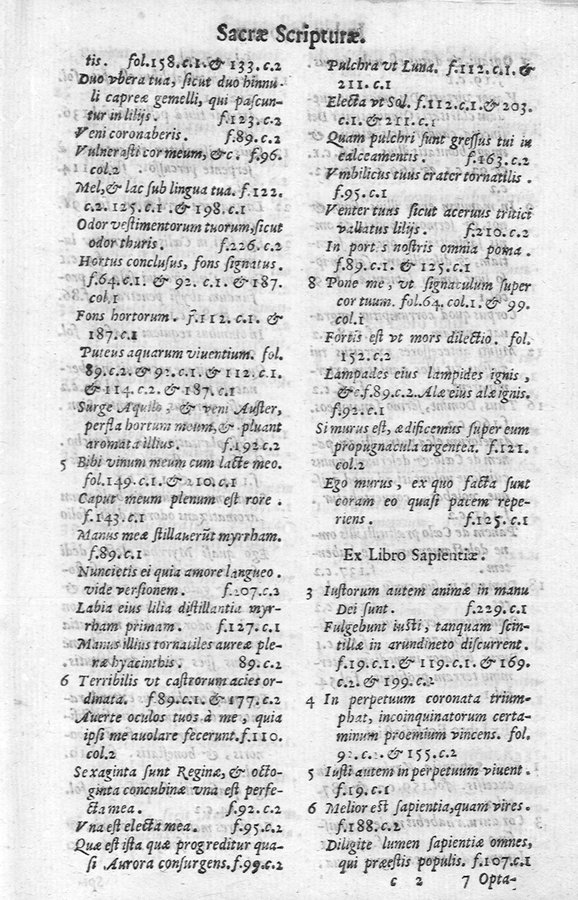 Sacræ Scripturæ.
tis. fol.158.c.1.& 133.c.2
Duo vbera tua, sicut duo hinnu-
li capreæ gemelli, qui pascun-
tur in lilijs. f.123.c.2
Veni coronaberis. f.89.c.2
Vulnerasti cor meum, &c. f.96.
col.2
Mel,& lac sub lingua tua. f.122.
c.2. 125.c.1. & 198.c.1
Odor vestimentorum tuorum,sicut
odor thuris. f.226.c.2
Hortus conclusus, fons signatus.
f.64.c.1. & 92. c.1. & 187.
col.1
Fons hortorum. f.112.c.1. &
187.c.1
Puteus aquarum viuentium. fol.
89.c.2.& 92.c.1. & 112.c.1.
& 114.c.2. & 187.c.1
Surge Aquilo, & veni Auster,
perfla hortum meum,& pluant
aromata illius. f.192 c.2
5 Bibi vinum meum cum lacte meo.
fol.149.c.1. & 210.c.1
Caput meum plenum est rore.
f.143.c.1
Manus meæ stillauerūt myrrham.
f.89.c.1
Nuncietis ei quia amore langueo.
vide versionem. f.207.c.2
Labia eius lilia distillantia myr-
rham primam. f.127.c.1
Manus illius tornatiles aureæ ple-
næ hyacinthis. 89.c.2
6 Terribilis vt castrorum acies or-
dinata. f.89.c.1. & 177.c.2
Auerte oculos tuos à me, quia
ipsi me auolare fecerunt. f.110.
col.2
Sexaginta sunt Reginæ,& octo-
ginta concubinæ vna est perfe-
cta mea. f.92.c.2
Vna est electa mea. f.95.c.2
Quæ est ista quæ progreditur qua-
si Aurora consurgens. f.99.c.2
Pulchra vt Luna. f.112.c.1. &
211.c.1
Electa vt Sol. f.112.c.1.& 203.
c.1. & 211.c.1
Quam pulchri sunt gressus tui in
calceamentis. f.163.c.2
Vmbilicus tuus crater tornatilis.
f.95.c.1
Venter tuus sicut aceruus tritici
vallatus lilijs. f.210.c.2
In portis nostris omnia poma.
f.89.c.1. & 125.c.1
8 Pone me, vt signaculum super
cor tuum. fol.64.col.1.& 99.
col.1
Fortis est vt mors dilectio. fol.
152.c.2
Lampades eius lampides ignis,
&c.f.89.c.2. Alæ eius alæ ignis.
f.92.c.1
Si murus est, ædificemus super eum
propugnacula argentea. f.121.
col.2
Ego murus, ex quo facta sunt
coram eo quasi pacem repe-
riens. f.125.c.1
Ex Libro Sapientiæ.
3 Iustorum autem animæ in manu
Dei sunt. f.229.c.1
Fulgebunt iusti, tanquam scin-
tillæ in arundineto discurrent.
f.19.c.1. & 119.c.1. & 169.
c.2. & 199.c.2
4 In perpetuum coronata trium-
phat, incoinquinatorum certa-
minum proemium vincens. fol.
92.c.1.& 155.c.2
5 Iusti autem in perpetuum viuent.
f.19.c.1
6 Melior est sapientia,quam vires.
f.188.c.2
Diligite lumen sapientiæ omnes,
qui præestis populis. f.107.c.1
c 2 7 Opta-